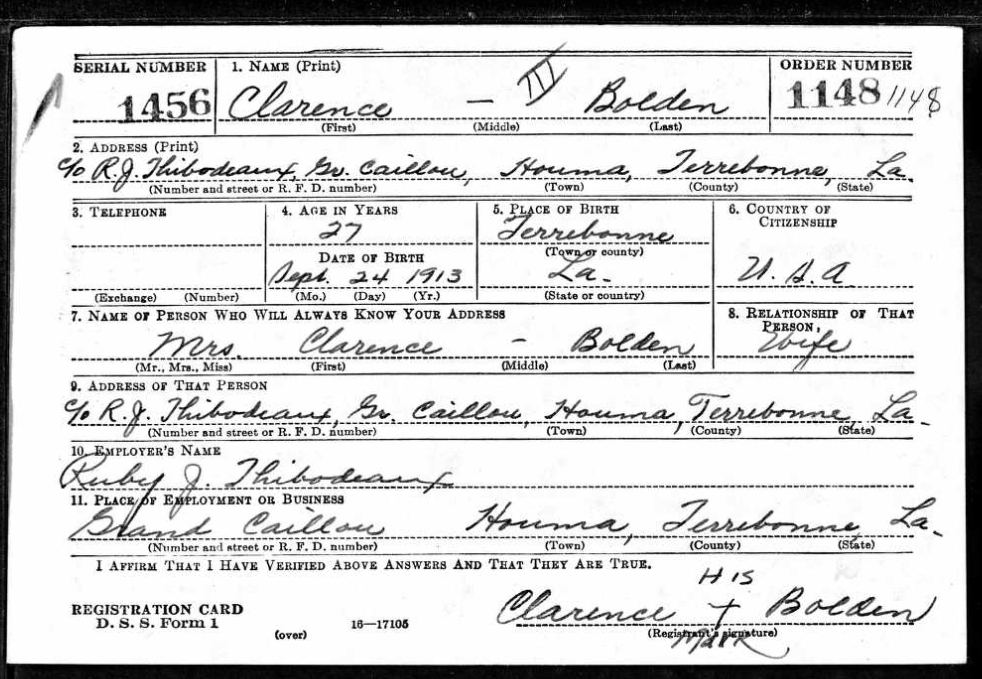 SERIAL NUMBER 1. NAME (Print) ORDER NUMBER
1456 Clarence — III Bolden 1148 1148
(First) (Middle) (Last)
2. ADDRESS (Print)
c/o R.J. Thibodeaux, Gr. Caillou, Houma, Terrebonne, La.
(Number and street or R. F. D. number) (Town) (County) (State)
3. TELEPHONE 4. AGE IN YEARS 5. PLACE OF BIRTH 6. COUNTRY OF CITIZENSHIP
27 Terrebonne
DATE OF BIRTH (Town or county)
Sept. 24 1913 La. U.S.A
(Exchange) (Number) (Mo.) (Day) (Yr.) (State or country)
7. NAME OF PERSON WHO WILL ALWAYS KNOW YOUR ADDRESS 8. RELATIONSHIP OF THAT PERSON
Mrs. Clarence - Bolden Wife
(Mr., Mrs., Miss) (First) (Middle) (Last)
9. ADDRESS OF THAT PERSON
c/o R.J. Thibodeaux, Gr. Caillou, Houma, Terrebonne, La.
(Number and street or R. F. D. number) (Town) (County) (State)
10. EMPLOYER'S NAME
Ruby J. Thibodeaux
11. PLACE OF EMPLOYMENT OR BUSINESS
Grand Caillou Houma, Terrebonne, La.
(Number and street or R. F. D. number) (Town) (County) (State)
I AFFIRM THAT I HAVE VERIFIED ABOVE ANSWERS AND THAT THEY ARE TRUE.
HIS
REGISTRATION CARD Clarence + Bolden
D. S. S. Form 1 (over) 16—17105 (Registrant's signature)
Mark